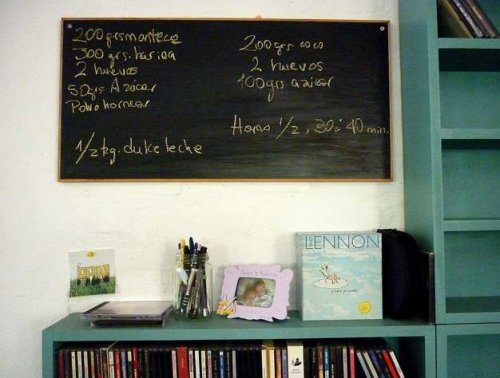 200 grs manteca
300 grs. harina
2 huevos
50 grs Azúcar
Polvo hornear
1/2 kg. dulce leche
200 grs coco
2 huevos
100 grs. azúcar
Horno 1/2, 30 i 40 min.
LENNON